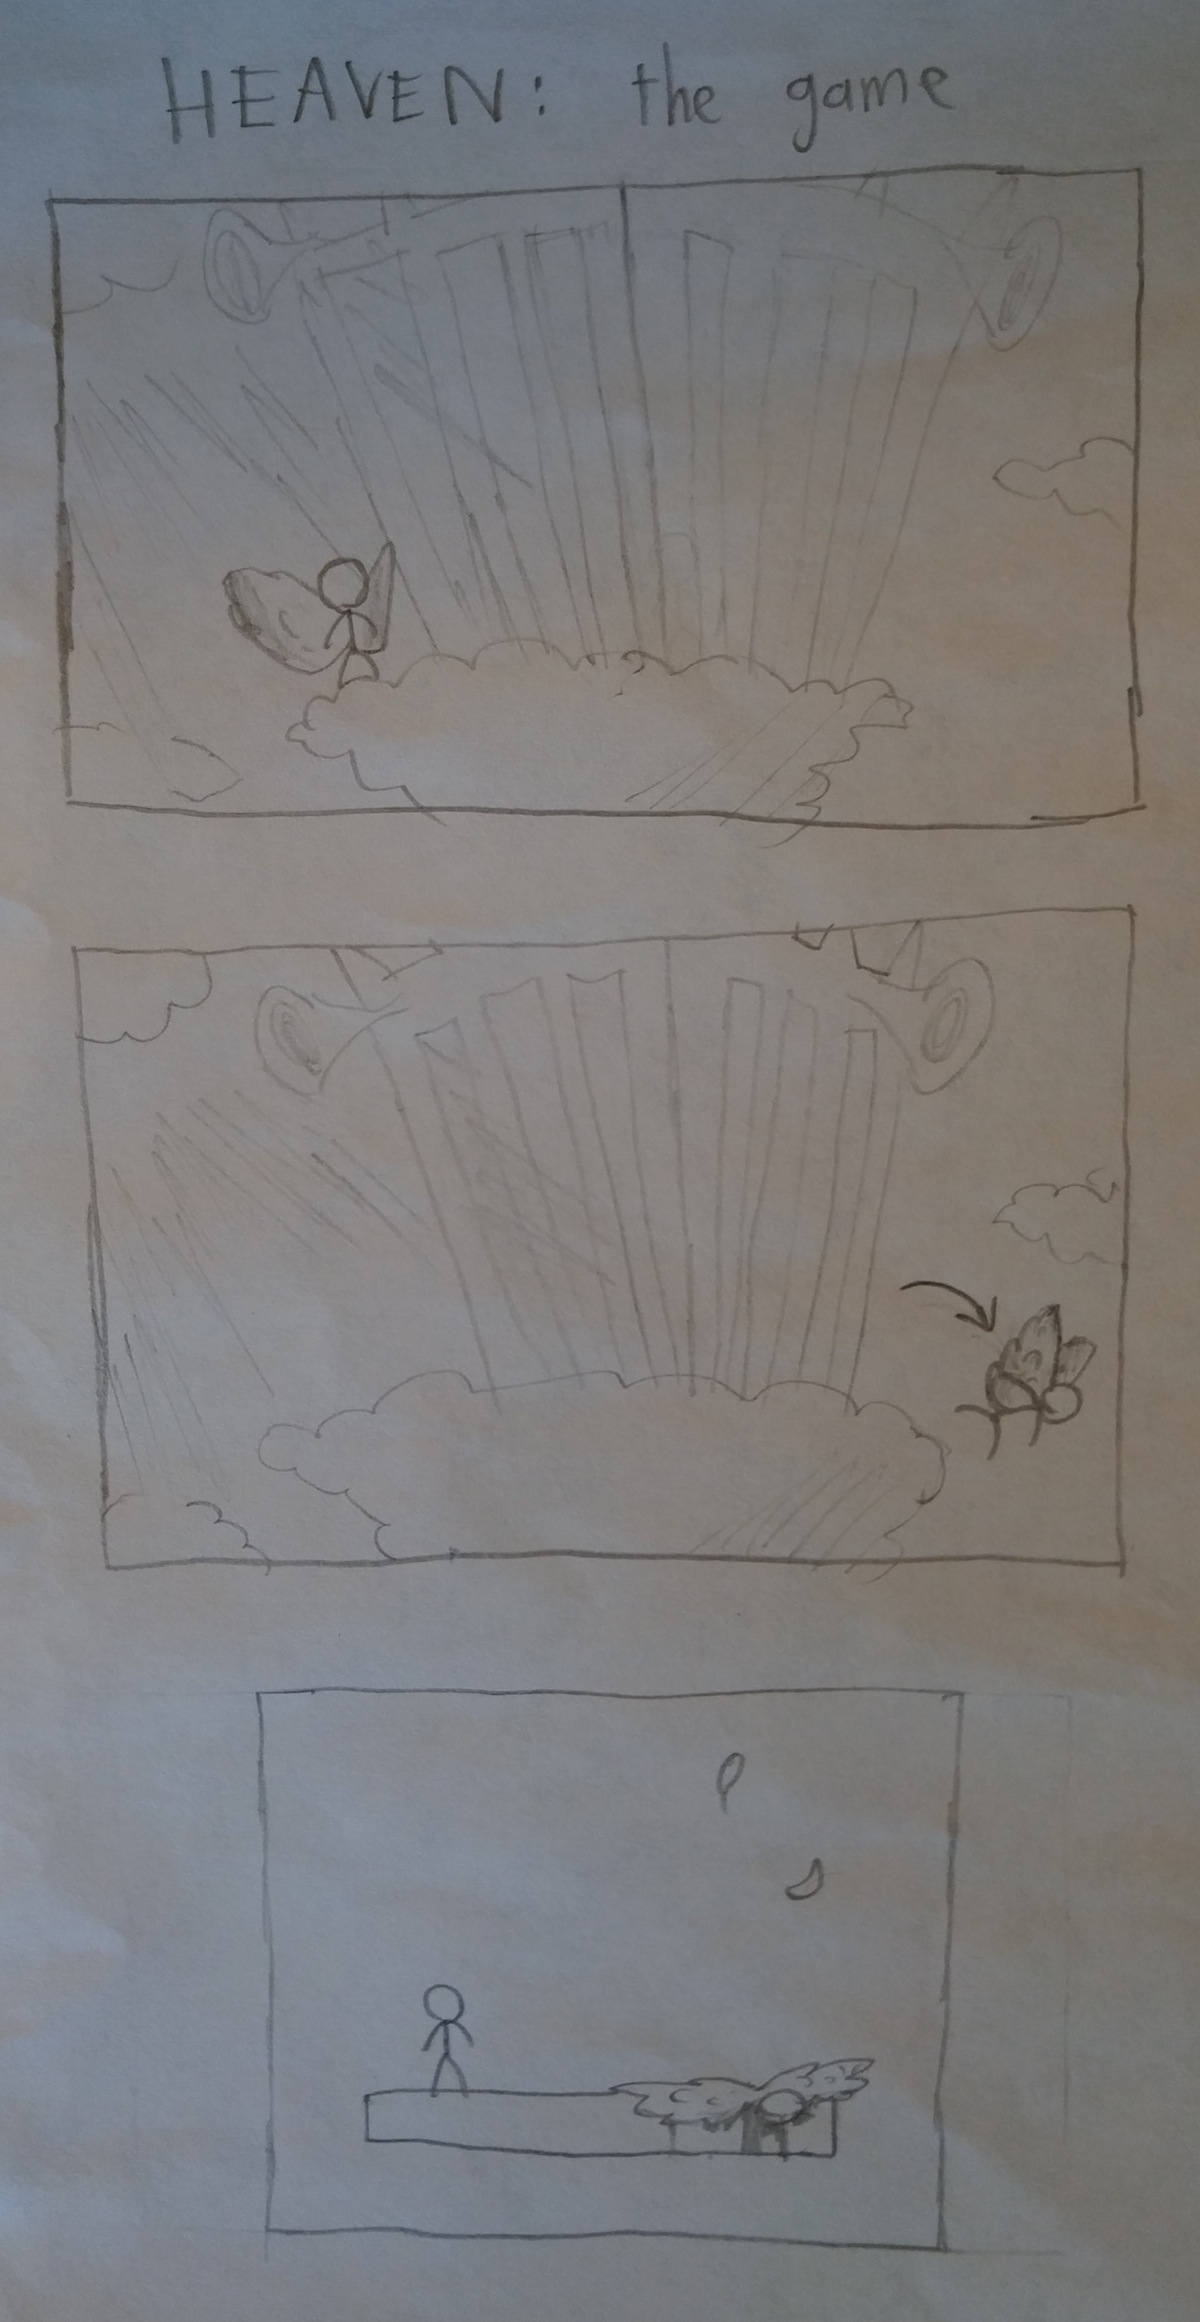 HEAVEN: the game